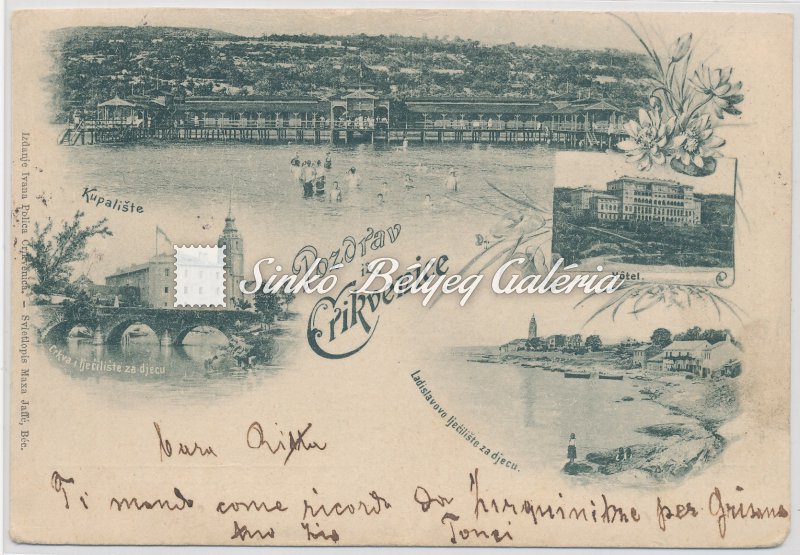 Izdanje Ivana Polića Crikvenica. – Svietlopis Maxa Jaffé, Beč.
Kupalište
Pozdrav
iz
Crikvenice
Hôtel.
Sinkó Bélyeg Galéria
Crkva i lječilište za djecu
Ladislavovo lječilište za djecu.
Cara
Ti mando come ricordo da per Grizane
tuo zio Tonci